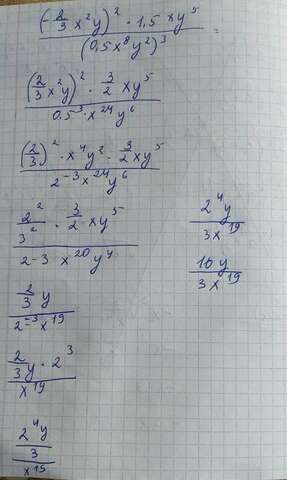 (-2/3 x²y)² · 1,5 xy⁵ / (0,5x⁸y²)³ =
(2/3 x²y)² · 3/2 xy⁵ / 0.5⁻³ · x²⁴y⁶
(2/3)² · x⁴y² · 3/2 xy⁵ / 2⁻³x²⁴y⁶
2²/3² · 3/2 xy⁵ / 2-3 x²⁰y⁴
2/3 y / 2⁻³x¹⁹
2/3 y · 2³ / x¹⁹
2⁴y/3 / x¹⁹
2⁴y / 3x¹⁹
16y / 3x¹⁹